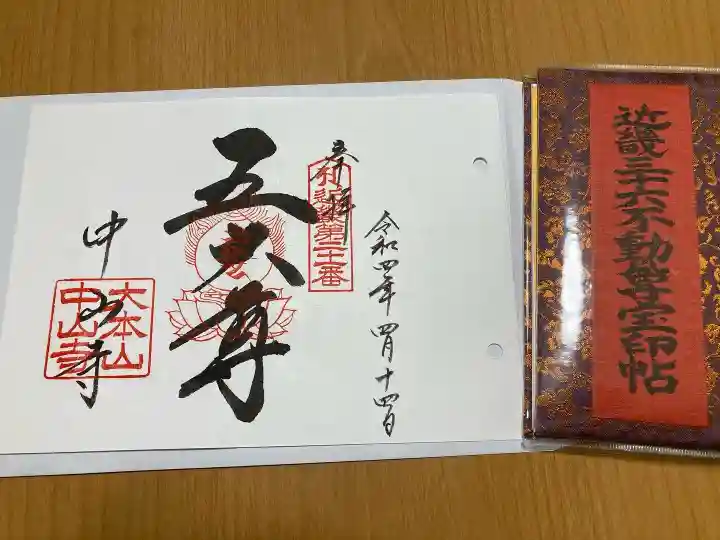 近畿三十六不動尊宝印帖
奉拝
令和四年四月十四日
近畿第二十一番
五大尊
中山寺
大本山
中山寺